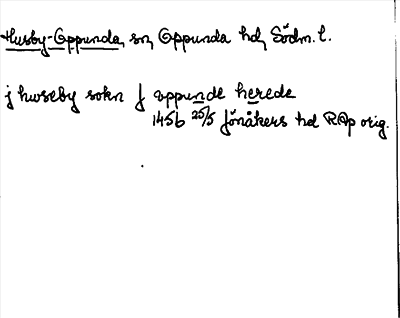 Husby-Oppunda, sn, Oppunda hd, Södm. l.
j huseby sokn j oppunde herede
1456 25/5 Jönåkers hd RAp orig.